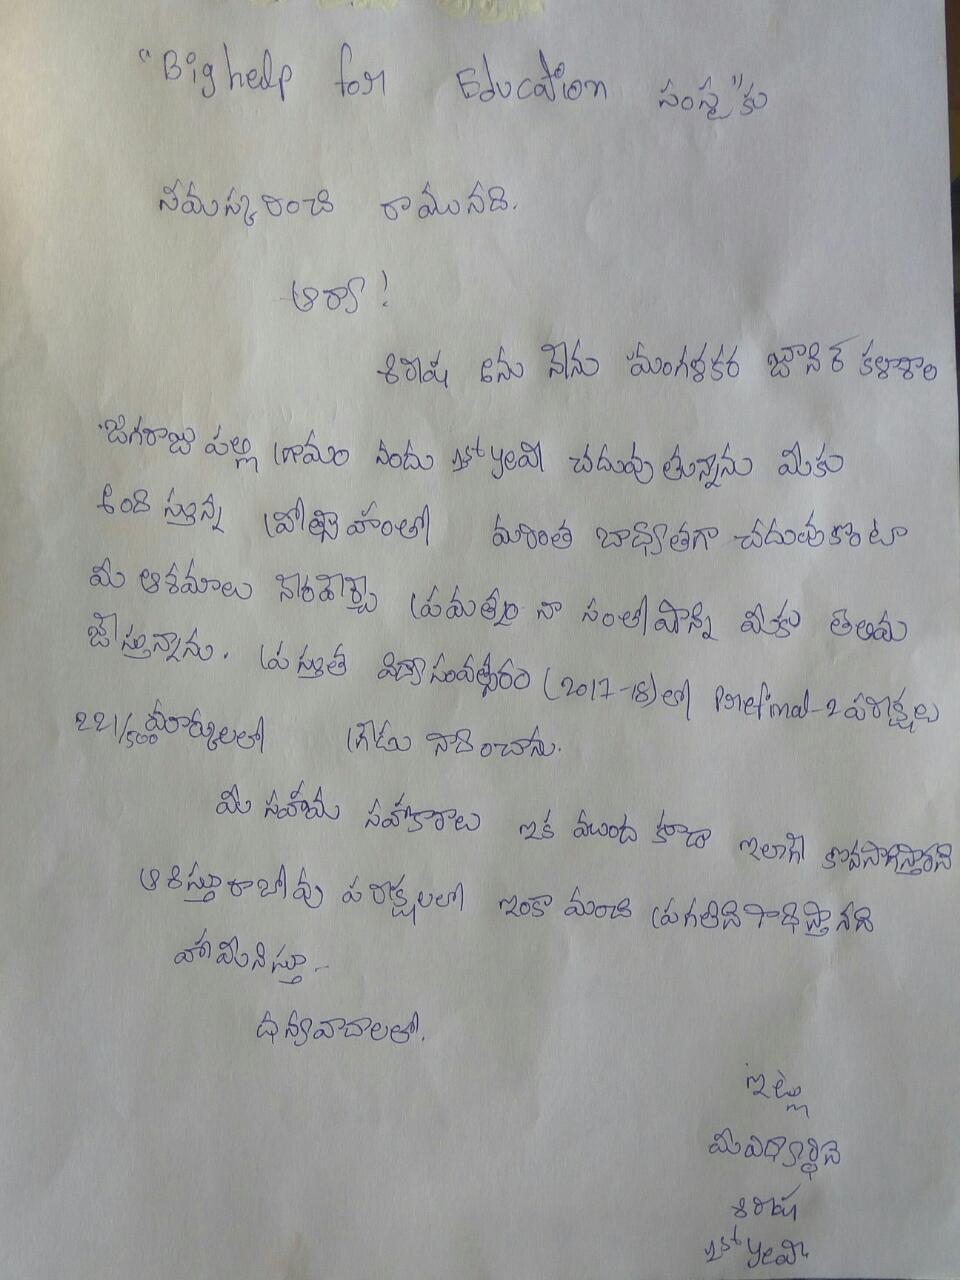 "Big help for Education సంస్థ"కు
నమస్కరించి రాయునది.
ఆర్యా!
శిరీష అను నేను మంగళకర జూనియర్ కళాశాల
జగరాజు పల్లి గ్రామం నందు 1st year చదువుతున్నాను మీకు
అందిస్తున్న ప్రోత్సాహంతో మరింత బాధ్యతగా చదువుకొంటా
మీ ఆశయాలు నెరవేర్చే ప్రయత్నం నా సంతోషాన్ని మీకు తెలియ
జేస్తున్నాను. ప్రస్తుత విద్యాసంవత్సరం (2017-18)లో Prefinal-2 పరీక్షలు
221/500 మార్కులలో గ్రేడు సాదించాను.
మీ సహాయ సహకారాలు ఇక ముందు కూడా ఇలాగే కొనసాగిస్తారని
ఆశిస్తూ రాబోవు పరీక్షలలో ఇంకా మంచి ప్రగతిని సాధిస్తానని
హామీనిస్తూ -
ధన్యవాదాలతో.
ఇట్లు
మీ విద్యార్థిని
శిరీష
1st year